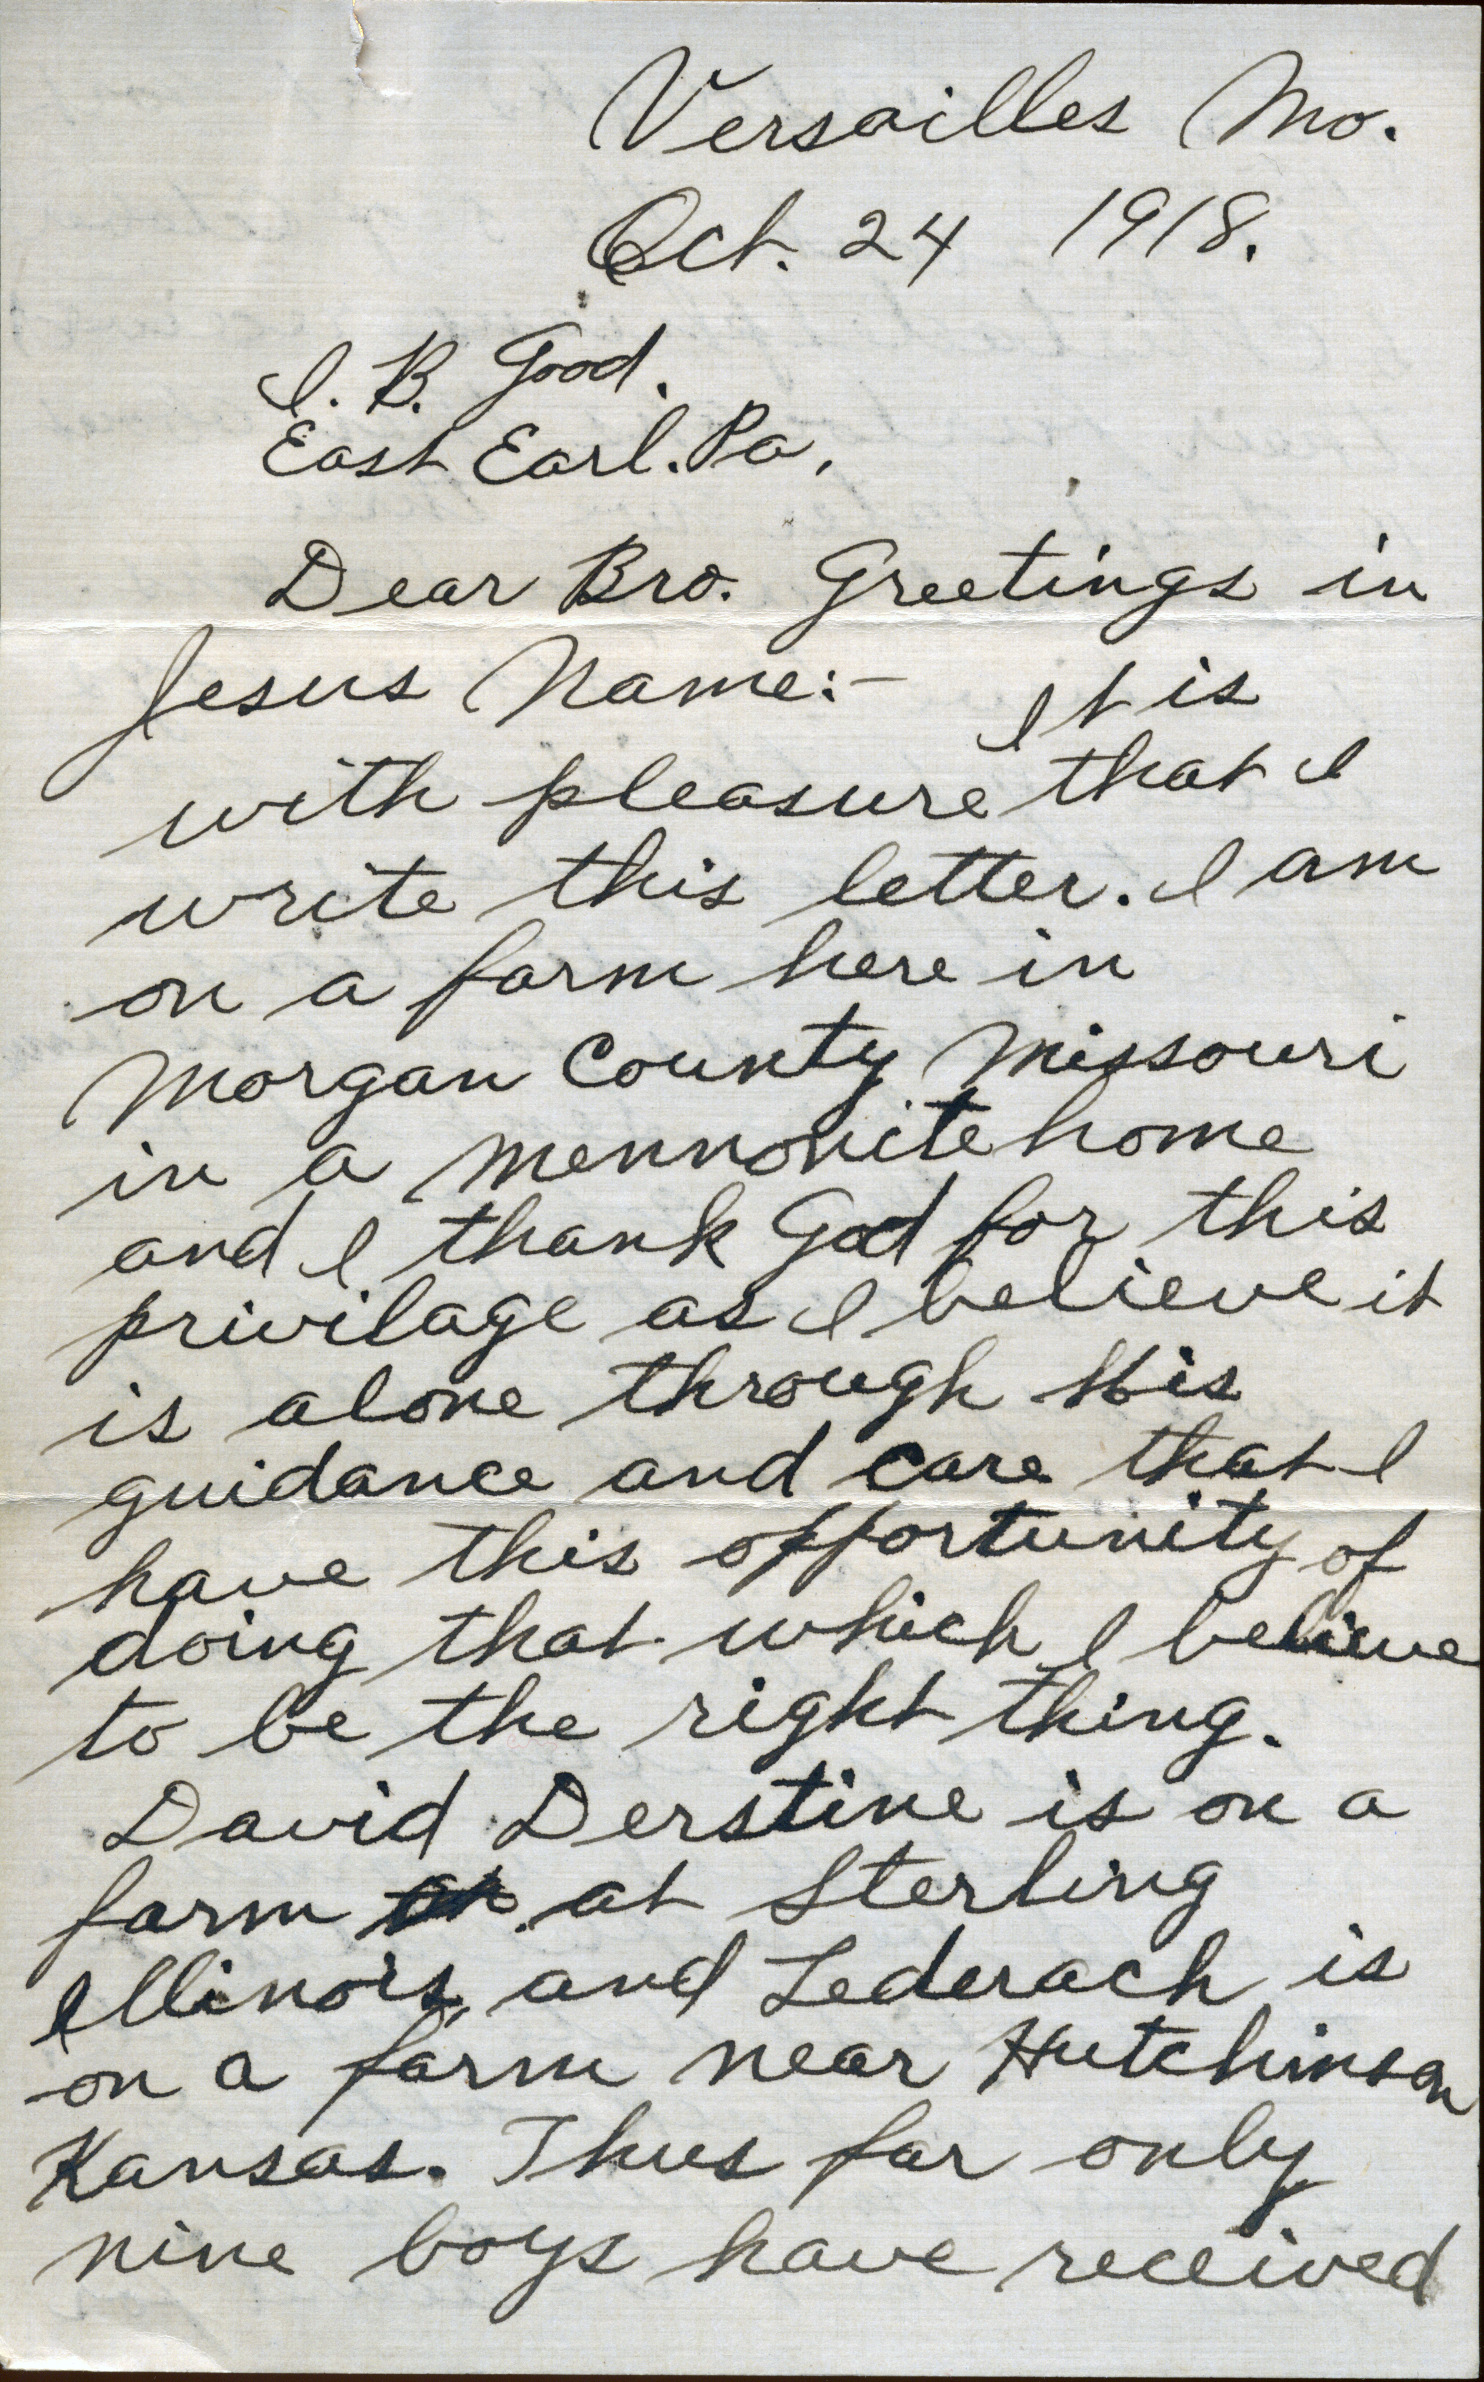 Versailles Mo.
Oct. 24 1918.
I. B. Good.
East Earl. Pa.
Dear Bro. Greetings in
Jesus Name:- It is
with pleasure that I
write this letter. I am
on a farm here in
Morgan County Missouri
in a Mennonite home
and I thank God for this
privilage as I believe it
is alone through His
guidance and care that I
have this opportunity of
doing that which I believe
to be the right thing.
David Derstine is on a
farm at Sterling
Illinois, and Lederach is
on a farm near Hutchinson
Kansas. Thus far only
nine boys have received